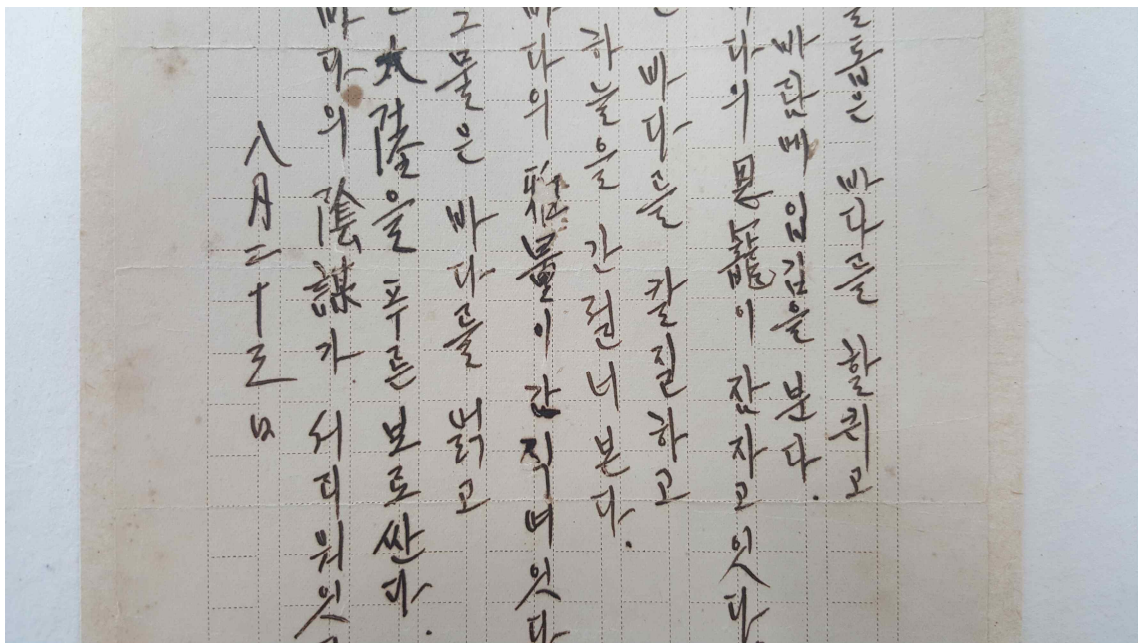 톱은 바다를 할퀴고
바람메 입김을 분다.
다의 龍이 잠자고 잇다
바다를 칼질하고
하늘을 본다.
바다의 이 잇다
그물은 바다를 얽고
大陸을 푸른 보로싼다.
바다의 陰謀가 서리워잇
八月二十三日